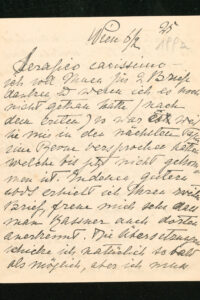 Wien 5/2 25
1882
Serafico carissimo –
ich soll Ihnen für 2 Briefe
danken & wenn ich es noch
nicht gethan hätte / nach
dem ersten / so war es weil
Sie mir in den nächsten
eine versprochen hatten
welche bis jetzt nicht gekom
men ist. Indessen
erhielt ich Ihren zweiten
Brief, freue mich sehr dass
man Brahms auch dorten
anerkennt. Die Übersetzungen
schicke ich natürlich so bald
als möglich, aber ich muss